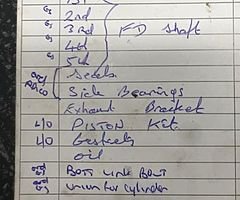 1st
G 2nd
G 3rd FD Shaft
G 4th
G 5th
Seals
Side Bearings
Exhaust Bracket
L/O PISTON Kit.
L/O Gaskets
oil
Bott Link Bolt
union for cylinder